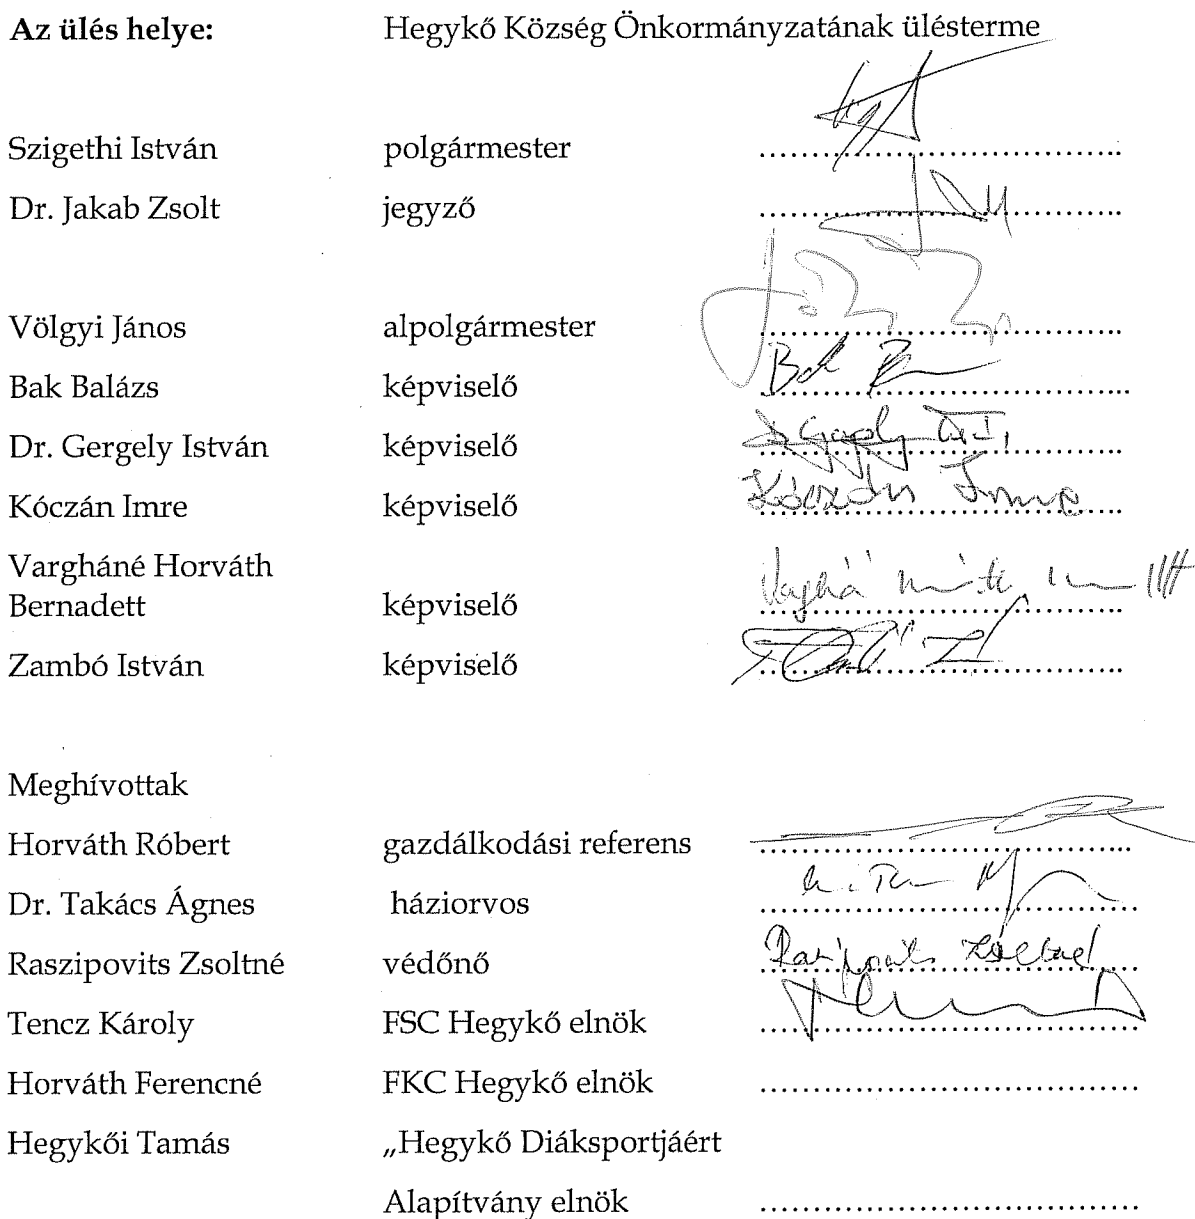 Az ülés helye: Hegykő Község Önkormányzatának ülésterme
Szigethi István polgármester ........................................
Dr. Jakab Zsolt jegyző ........................................
Völgyi János alpolgármester ........................................
Bak Balázs képviselő ........................................ Bak
Dr. Gergely István képviselő ........................................
Kóczán Imre képviselő ........................................ Kóczán Imre
Vargháné Horváth
Bernadett képviselő ........................................
Zambó István képviselő ........................................
Meghívottak
Horváth Róbert gazdálkodási referens ........................................
Dr. Takács Ágnes háziorvos ........................................
Raszipovits Zsoltné védőnő ........................................
Tencz Károly FSC Hegykő elnök ........................................
Horváth Ferencné FKC Hegykő elnök ........................................
Hegykői Tamás „Hegykő Diáksportjáért
Alapítvány elnök ........................................